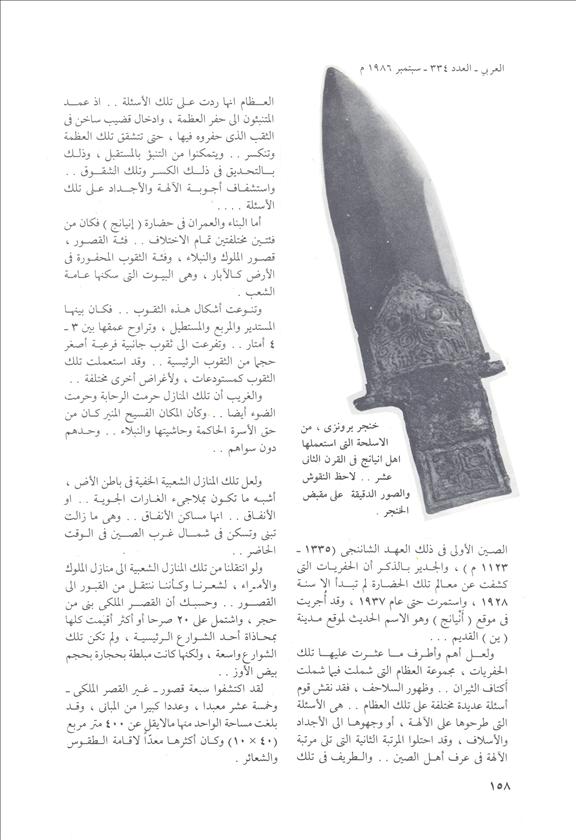 العربي ـ العدد ٣٣٤ ـ سبتمبر ١٩٨٦ م
خنجر برونزى ، من
الاسلحة التى استعملها
اهل انيانج فى القرن الثانى
عشر . . لاحظ النقوش
والصور الدقيقة على مقبض
الخنجر .
الصين الأولى فى ذلك العهد الشاننجى (١٣٣٥ ـ
١١٢٣ م ) ، والجدير بالذكر أن الحفريات التى
كشفت عن معالم تلك الحضارة لم تبدأ الا سنة
١٩٢٨ ، واستمرت حتى عام ١٩٣٧ ، وقد أجريت
فى موقع ( أنْيانج ) وهو الاسم الحديث لموقع مدينة
( ين ) القديم . . .
ولعل أهم وأطرف ما عثرت عليها تلك
الحفريات ، مجموعة العظام التى شملت فيما شملت
أكتاف الثيران . . وظهور السلاحف ، فقد نقش قوم
أسئلة عديدة مختلفة على تلك العظام . . هى الأسئلة
التى طرحوها على الآلهة ، أو وجهوها الى الأجداد
والأسلاف ، وقد احتلوا المرتبة الثانية التى تلى مرتبة
الآلهة فى عرف أهل الصين . . والطريف فى تلك
العظام انها ردت على تلك الأسئلة . . اذ عمد
المتنبئون الى حفر العظمة ، وادخال قضيب ساخن فى
الثقب الذى حفروه فيها ، حتى تتشقق تلك العظمة
وتنكسر . . ويتمكنوا من التنبؤ بالمستقبل ، وذلك
بالتحديق فى ذلك الكسر وتلك الشقوق . .
واستشفاف أجوبة الآلهة والأجداد على تلك
الأسئلة . . . .
أما البناء والعمران فى حضارة ( إنيانج ) فكان من
فئتين مختلفتين تمام الاختلاف . . فئة القصور ،
قصور الملوك والنبلاء ، وفئة الثقوب المحفورة فى
الأرض كالآبار ، وهى البيوت التى سكنها عامة
الشعب .
وتنوعت أشكال هذه الثقوب . . فكان بينها
المستدير والمربع والمستطيل ، وتراوح عمقها بين ٣ ـ
٤ أمتار . . وتفرعت الى ثقوب جانبية فرعية أصغر
حجما من الثقوب الرئيسية . . وقد استعملت تلك
الثقوب كمستودعات ، ولأغراض أخرى مختلفة . .
والغريب أن تلك المنازل حرمت الرحابة وحرمت
الضوء أيضا . . وكأن المكان الفسيح المنير كان من
حق الأسرة الحاكمة وحاشيتها والنبلاء . . وحدهم
دون سواهم . .
ولعل تلك المنازل الشعبية الخفية فى باطن الأض ،
أشبه ما تكون بملاجىء الغارات الجوية . . او
الأنفاق . . انها مساكن الأنفاق . . وهى ما زالت
تبنى وتسكن فى شمال غرب الصين فى الوقت
الحاضر . .
ولو انتقلنا من تلك المنازل الشعبية الى منازل الملوك
والأمراء ، لشعرنا وكأننا ننتقل من القبور الى
القصور . . وحسبك أن القصر الملكى بنى من
حجر ، واشتمل على ٢٠ صرحا أو أكثر أقيمت كلها
بمحاذاة أحد الشوارع الرئيسية ، ولم تكن تلك
الشوارع واسعة ، ولكنها كانت مبلطة بحجارة بحجم
بيض الأوز . .
لقد اكتشفوا سبعة قصور ـ غير القصر الملكى ـ
وخمسة عشر معبدا ، وعددا كبيرا من المبانى ، وقد
بلغت مساحة الواحد منها مالايقل عن ٤٠٠ متر مربع
(٤٠ × ١٠) وكان أكثرها معدّاً لاقامة الطقوس
والشعائر .
١٥٨